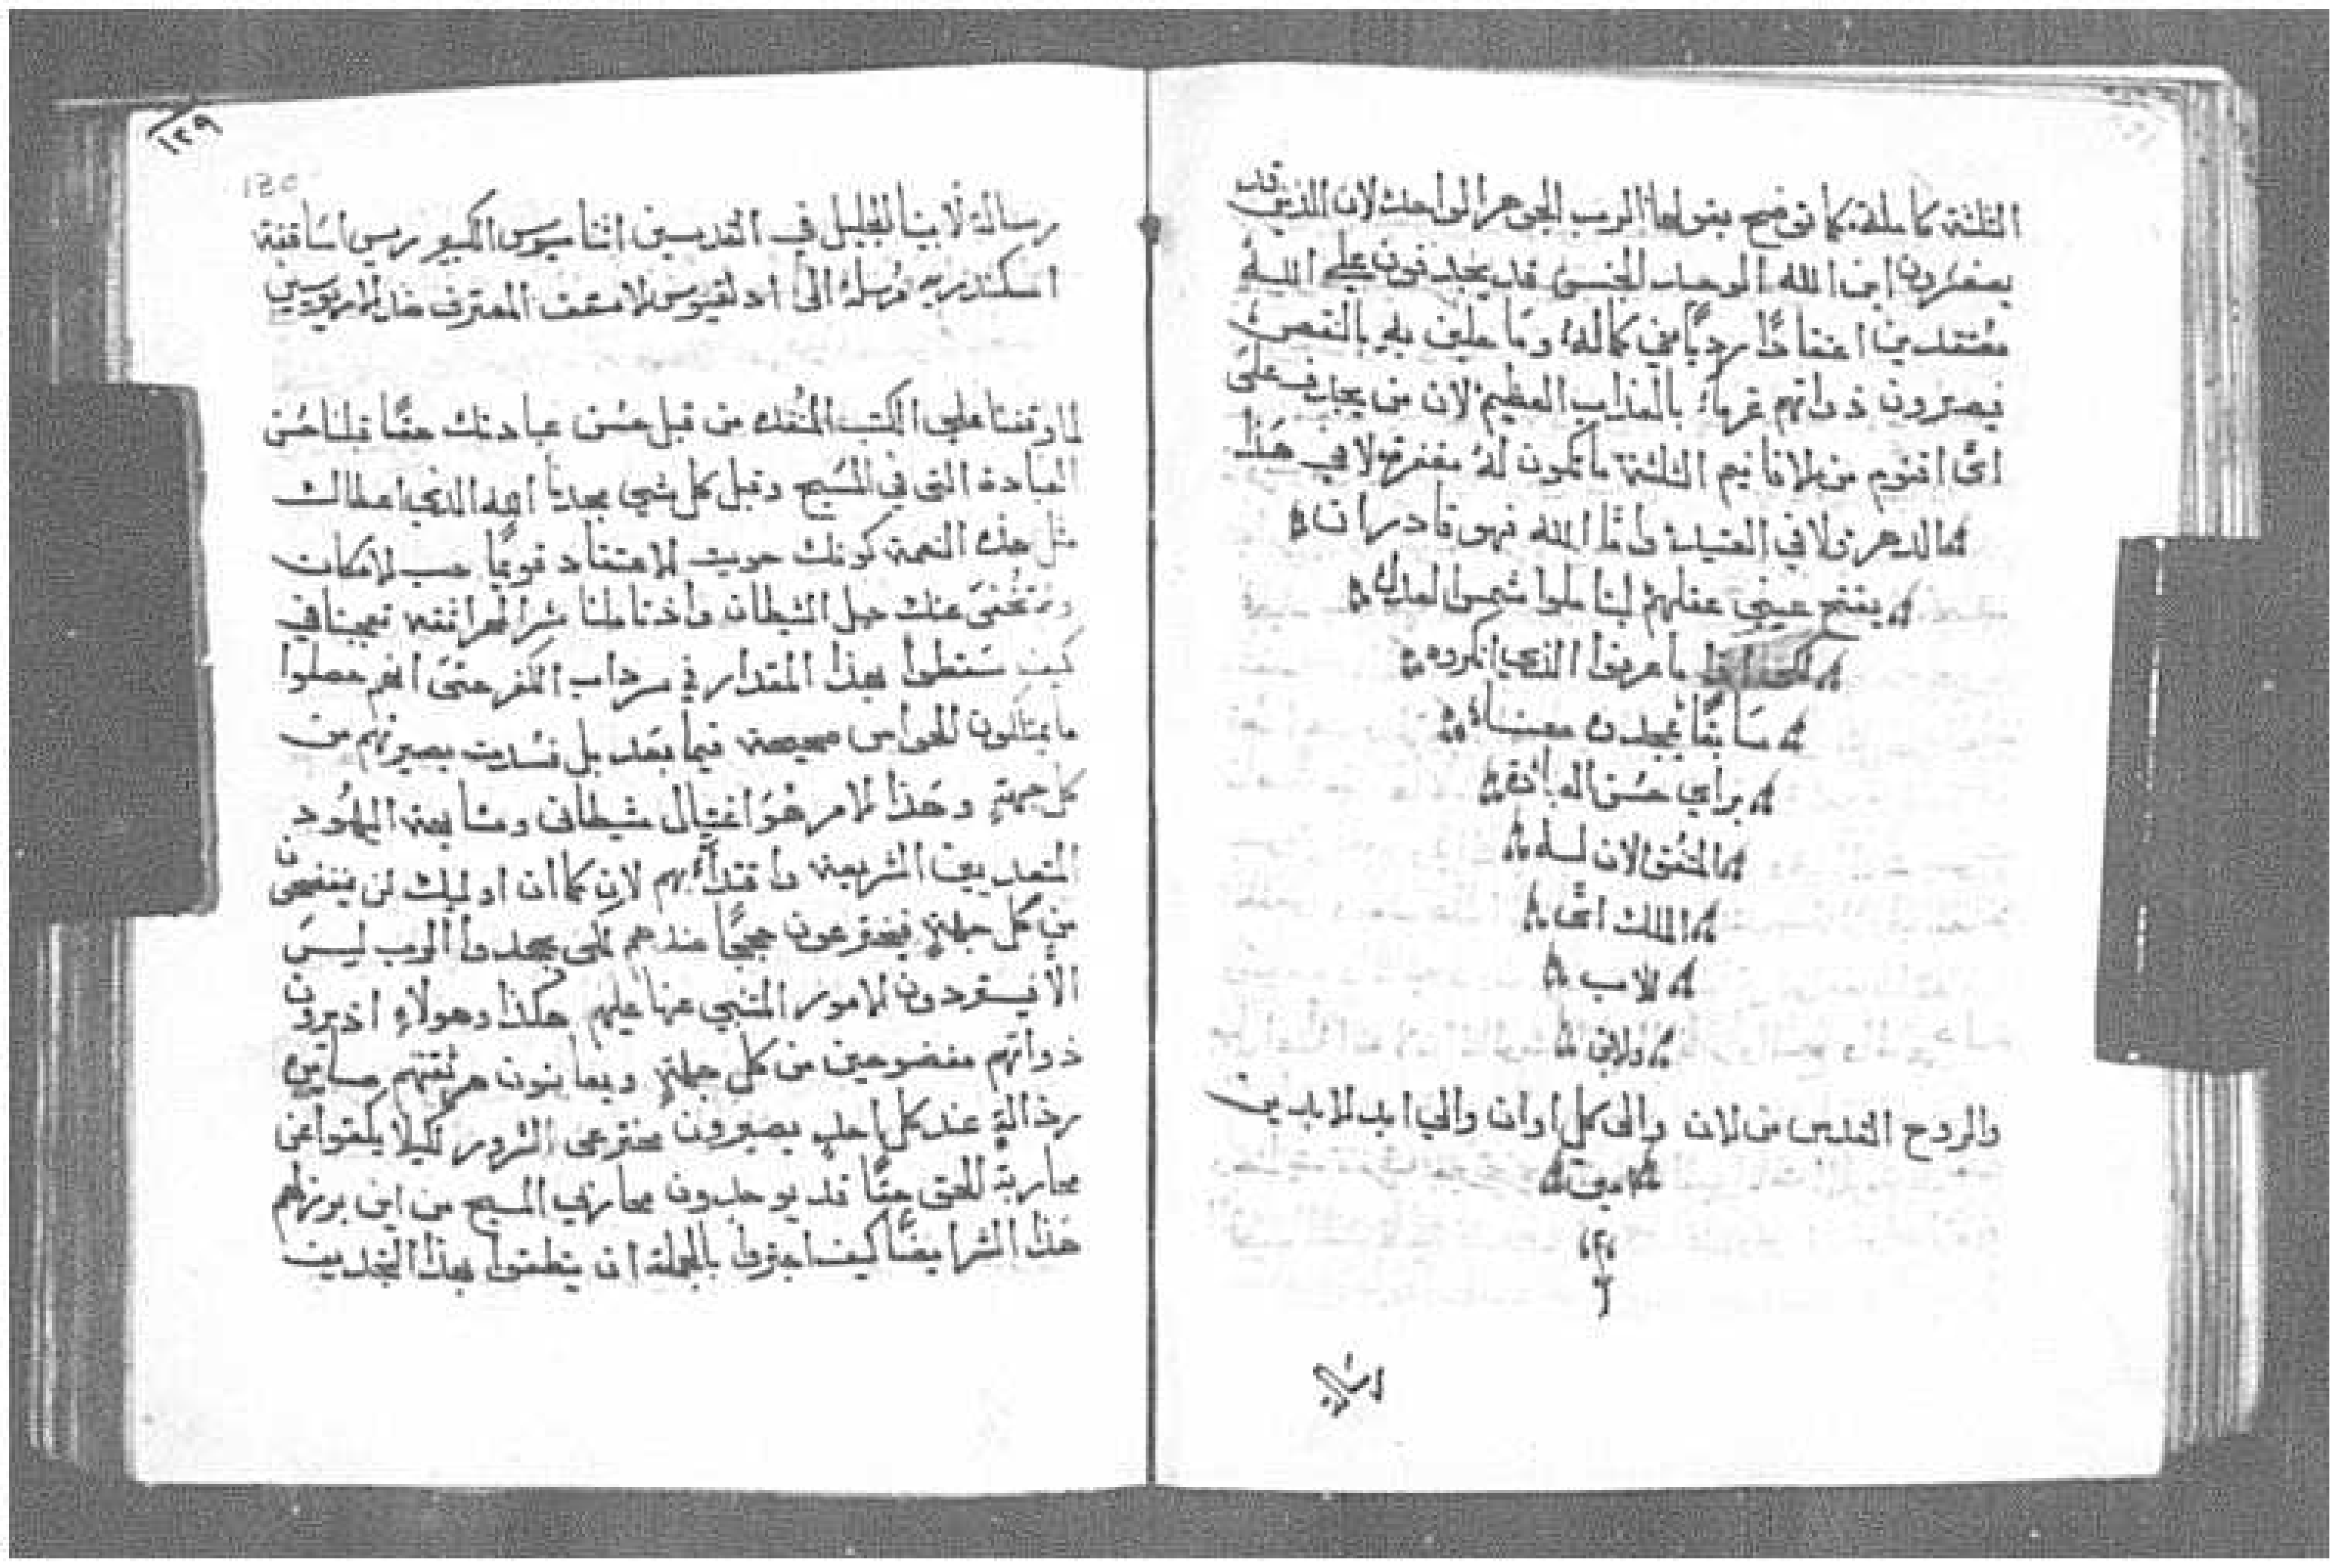 الثلثة كاملة كما توضح بقولها الرب الجوهر الواحد لان الذين قد
يصغرون ابن الله الوحيد الجنس قد يجدفون علي الله
معتقدين اعتقادًا رديًا في كماله وماحلين به بالنقص
فيصيرون ذواتهم غرماء بالعذاب العظيم لان من يجدف على
اى اقنوم من الاقانيم الثلثة ما تكون له مغفرة لا في هذا
الدهر ولا في العتيد واما الله فهو قادر ان
يفتح عيني عقلهم ليتاملوا شمس العدل
لكى اذا ما عرفوا الذي انكروه
سابقًا يمجدوه معنا
براي حسن العبادة
المتفق الان له
الملك اعنى
للاب
والابن
والروح القدس من الان والى كل اوان والي ابد الابدين
امين
١٢٩
130
رسالة لابينا الجليل في القديسين اثناسيوس الكبير ريس اساقفة
اسكندريه مرسله الى ادلفيوس الاسقف المعترف ضد الاريوسيين
لما وقفنا على الكتب المنفذه من قبل حسن عبادتك حقًا قبلنا حسن
العبادة التي في المسيح وقبل كل شي مجدنا الله الذي اعطاك
مثل هذه النعمة كونك حويت الاعتقاد قويمًا حسب الامكان
عنك حيل الشيطان واذ تاملنا شر الهراتقه تعجبنا في
كيف سقطوا بهذا المقدار في سرداب الكفر حتى انهم حصلوا
ما يمتلكون الحواس صحيحة فيما بعد بل فسدت بصيرتهم من
كل جهةٍ وهذا الامر هو اغتيال شيطاني ومشابهة اليهود
المتعديين الشريعة واقتداء بهم لان كما ان اوليك لن يفتضحون
من كل جهةٍ فيخترعون حججًا ضدهم لكى يجحدوا الرب ليس
الا فيستردون الامور المتنبي عنها عليهم هكذا وهولاءِ اذ يرون
ذواتهم مفضوحين من كل جهةٍ ويعاينون هرتقتهم صايرة
رذالةٍ عند كل احدٍ يصيرون مخترعى الشرور لكيلا يكفوا عن
محاربة الحق حقًا قد يوجدون محاربي المسيح من اين برز لهم
هذا الشر ايضًا كيف اجتروا بالجملة ان ينطقوا بهذا التجديف